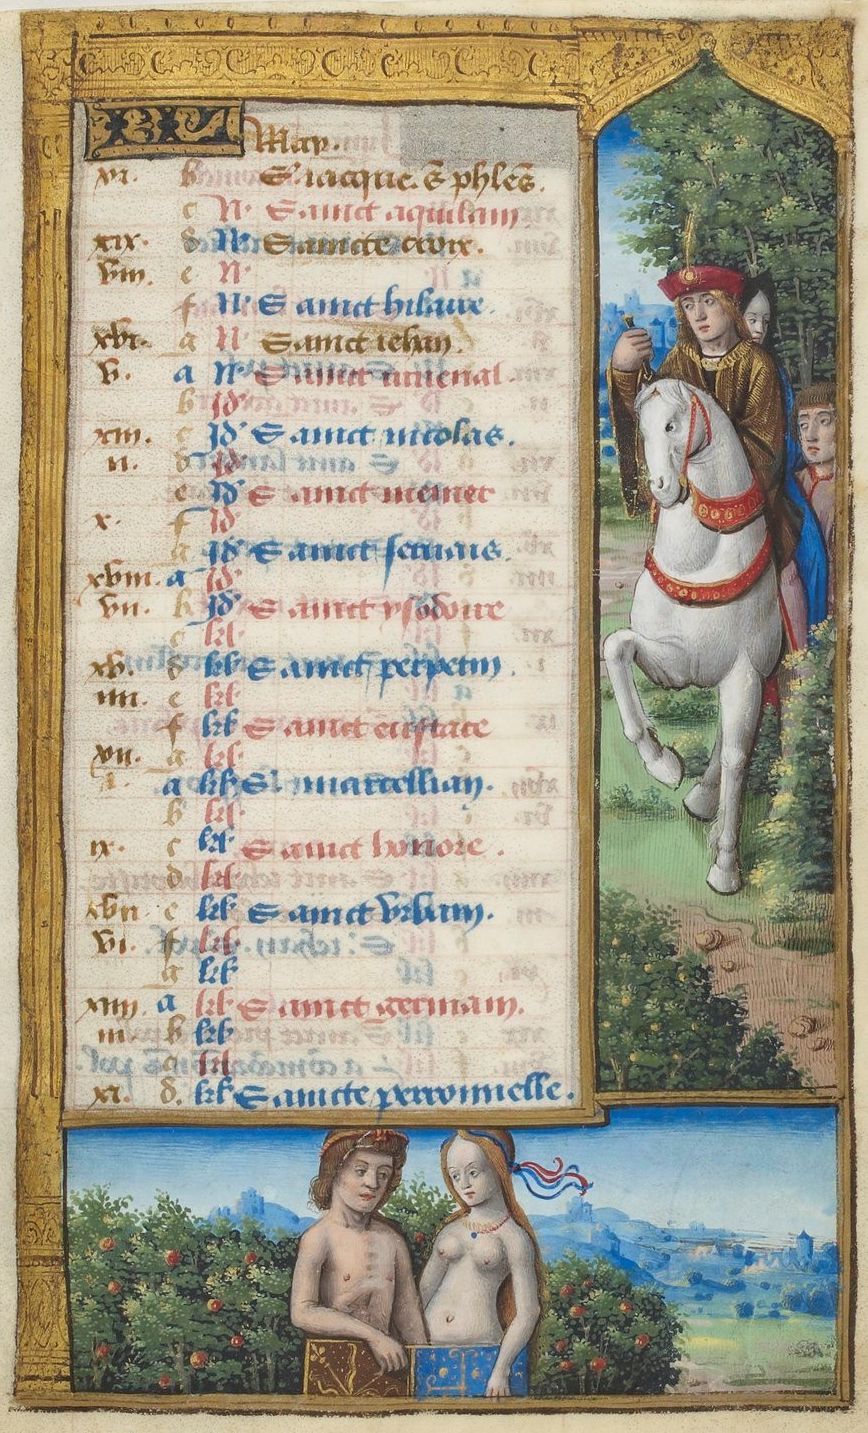 May.
xi. b S. iacque. s phles.
c N. Sainct aquilain.
xix. d N. Saincte croix.
viii. e N.
f N. Sainct hilaire.
xvi. g N. Sainct iehan.
v. a N. Sainct iuuenal.
b Id'
xiii. c Id' Sainct nicolas.
ii. d Id'
e Id' Sainct memer
x. f Id'
g Id' Sainct seruais.
xviii. a Id'
vii. b Id' Sainct ysodoire
c kl'
xv. d kl' Sainct perpetin.
iiii. e kl'
f kl' Sainct eustace
xii. g kl'
i. a kl' S. marcellian.
b kl'
ix. c kl' Sainct honore.
d kl'
xvii. e kl' Sainct Vrbain.
vi. f kl'
g kl'
xiiii. a kl' Sainct germain.
iii. b kl'
c kl'
xi. d. kl' Saincte perronnelle.